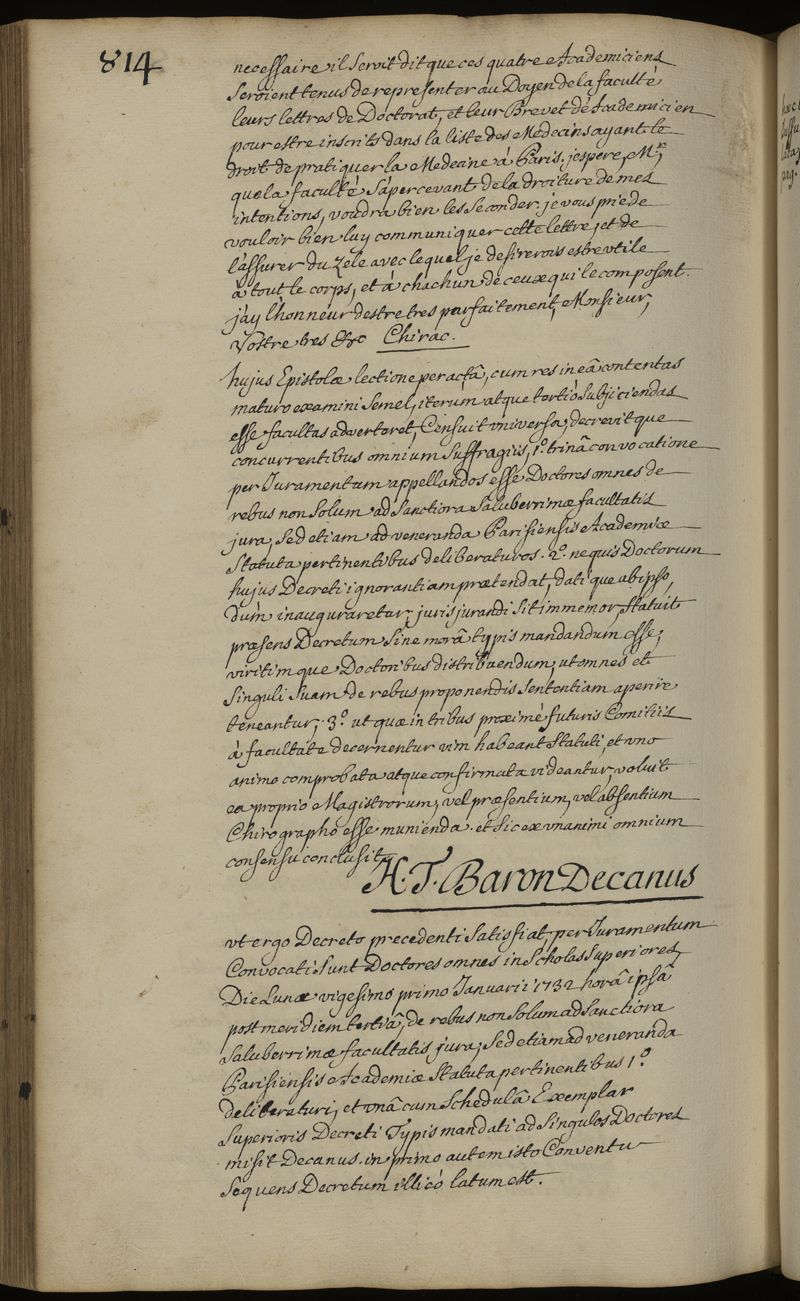 814
necessaire il seroit dit que ces quatre Academiciens
seroient tenus de representer au Doyen de la faculté
leurs lettres de Doctorat, et leur Brevet d'Academicien
pour estre inscrits dans la liste des Medecins ayant le
droit de pratiquer la Medecine à Paris. j'espere, Mr,
que la faculté s'apercevant de la droiture de mes
intentions, voudra bien les seconder. je vous prie de
vouloir bien luy communiquer cette lettre, et de
l'assurer du zele avec lequel je desirerois estre utile
à tout le corps, et à chachun de ceux qui le composent.
j'ay l'honneur d'estre tres parfaitement, Monsieur,
Vostre tres &c Chirac.
hujus Epistolæ lectione peractâ, cum res in eâ contentas
maturo examini semel, iterum atque tertiò subjiciendas
esse facultas adverteret, Censuit universa, decrevitque
concurrentibus omnium suffragiis, 1º. trinâ convocatione
per Juramentum appellandos esse Doctores omnes de
rebus non solum ad sanctiora saluberrimæ facultatis
jura, sed etiam ad veneranda Parisiensis Academiæ
statuta pertinentibus deliberaturos. 2º. ne quis Doctorum
hujus Decreti ignorantiam prætendat, datique ab ipso,
dum inauguraretur, jurisjurandi sit immemor, statuit
præsens Decretum sine morâ typis mandandum esse,
viritimque Doctoribus distribuendum, ut omnes et
singuli suam de rebus proponendis sententiam aperire
teneantur, 3º. ut quæ in tribus proximè futuris Comitiis
à facultate decernentur vim habeant statuti, et uno
animo comprobata atque confirmata videantur, voluit
ea proprio Magistrorum, vel præsentium, vel absentium
Chirographo esse munienda. et sic ex unanimi omnium
consensu conclusit
H. T. Baron Decanus
ut ergo Decreto precedenti satisfiat, per Juramentum
Convocati sunt Doctores omnes in Scholas superiores,
Die Lunæ vigesimo primo Januarii 1732 horâ ipsâ
post meridiem tertiâ, de rebus non solum ad sanctiora
saluberrimæ facultatis jura, sed etiam ad veneranda
Parisiensis Academiæ statuta pertinentibus 1º.
deliberaturi, et unâ cum schedulâ Exemplar
superioris Decreti Typis mandati ad singulos Doctores
misit Decanus. in primo autem isto Conventu
sequens Decretum illicò latum est.